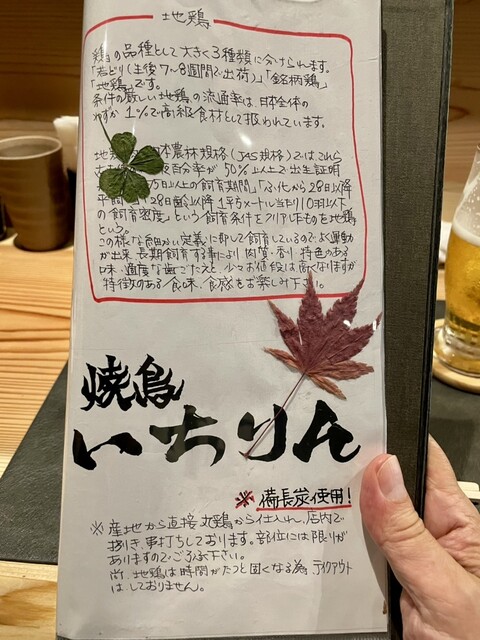 地鶏
鶏の品種として大きく3種類に分けられます。
「若どり(生後7〜8週間で出荷)」「銘柄鶏」
「地鶏」です。
条件の厳しい地鶏の流通率は、日本全体の
わずか1%で高級食材として扱われています。
地鶏 本農林規格(JAS規格)ではこれら
百分率が50%以上で出生証明
万日以上の飼育期間」「ふ化から28日以降
平飼 「28日齢以降1平方メートル当たり10羽以下
の飼育密度」という飼育条件をクリアしたものを地鶏
という。
この様な細かい定義に即して飼育しているので、よく運動
が出来、長期飼育する事により肉質・香り・特色のある
味・適度な歯ごたえと、少々お値段は高くなりますが
特徴のある食味、食感をお楽しみ下さい。
焼鳥
いちりん
※備長炭使用!
※産地から直接丸鶏から仕入れし、店内で
捌き、串打ちしております。部位には限りが
ありますのでご了承下さい。
尚、地鶏は時間がたつと固くなる為、テイクアウト
は、しておりません。